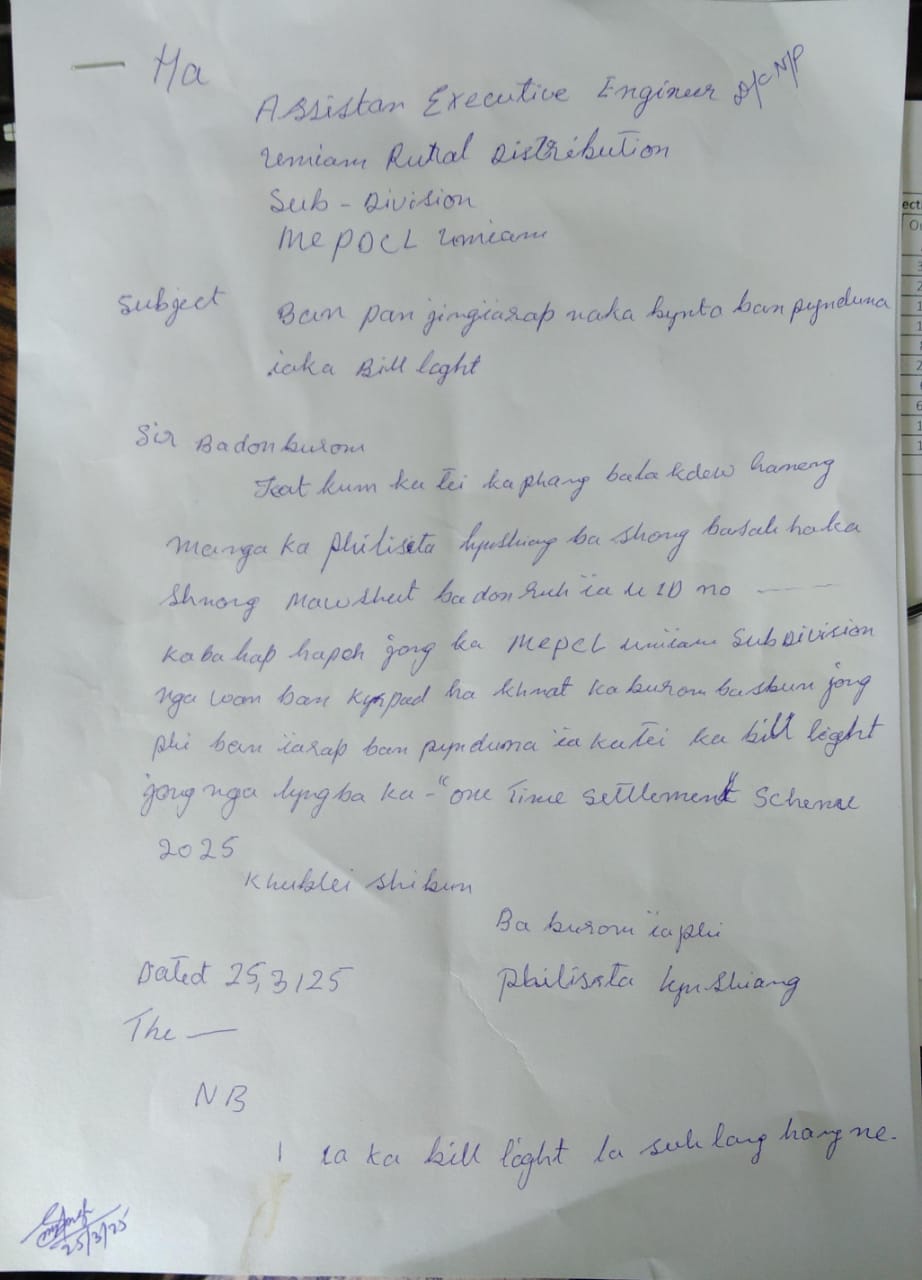 Ha
Assistan Executive Engineer D/C N/P
Umiam Rural Distribution
Sub - Division
MePDCL Umiam
Subject Ban pan jingïarap naka bynta ban pynduna
ïaka Bill light
Sir Badonburom
Katkum ka tei kaphang bala kdew haneng
manga ka Philisita kynshiang ba shong basah haka
Shnong Mawshut ba don ruh ïa u ID no ——
kaba hap hapoh jong ka MePCL umiam SubDivision
nga wan ban kyrpad ha khmat ka burom baskhun jong
phi ban ïarap ban pynduna ïa katei ka bill light
jong nga lyngba ka - "one Time Settlement" Scheme
2025
Khublei shibun
Ba burom ïaphi
Dated 25,3,25 Philisita kynshiang
The —
NB
1 ïa ka bill light la suh lang hangne.
25/3/25